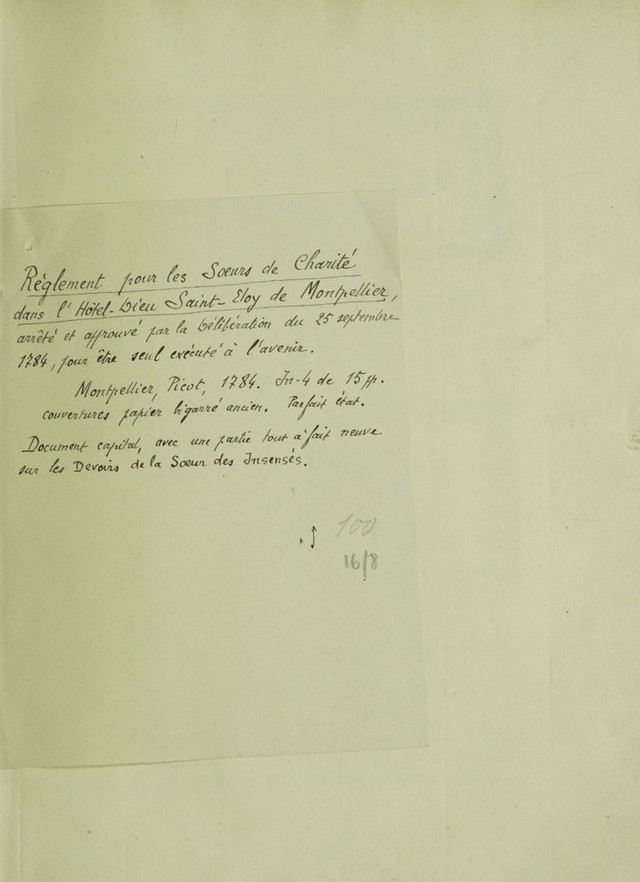 Règlement pour les Sœurs de Charité
dans l'Hôtel-Dieu Saint-Eloy de Montpellier,
arrêté et approuvé par la Délibération du 25 septembre
1784, pour être seul exécuté à l'avenir.
Montpellier, Picot, 1784. In-4 de 15 pp.
couvertures papier bigarré ancien. Parfait état.
Document capital, avec une partie tout à fait neuve
sur les Devoirs de la Sœur des Insensés.
100
16/8